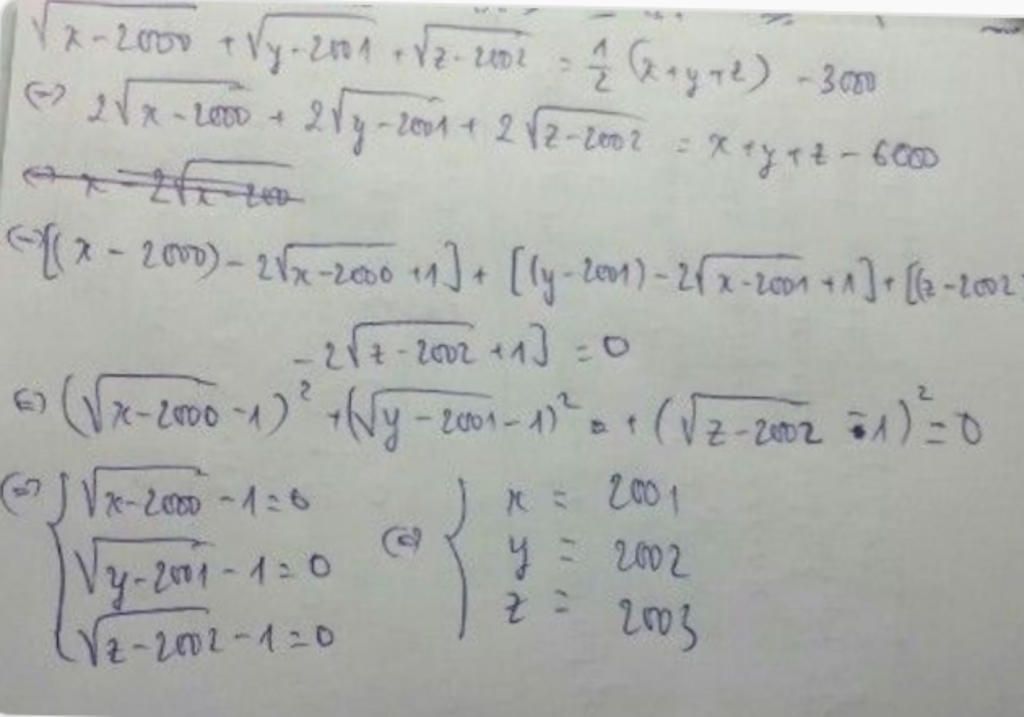 √(x-2000) + √(y-2001) + √(z-2002) = 1/2 (x+y+z) - 3000
(=) 2√(x-2000) + 2√(y-2001) + 2√(z-2002) = x+y+z - 6000
(=) x - 2√(x-200
(=) [(x-2000) - 2√(x-2000) + 1] + [(y-2001) - 2√(x-2001) + 1] + [(z-2002)
- 2√(z-2002) + 1] = 0
(=) (√(x-2000) - 1)² + (√(y-2001) - 1)² + (√(z-2002) - 1)² = 0
(=) { √(x-2000) - 1 = 0 (=) { x = 2001
√(y-2001) - 1 = 0 y = 2002
√(z-2002) - 1 = 0 z = 2003